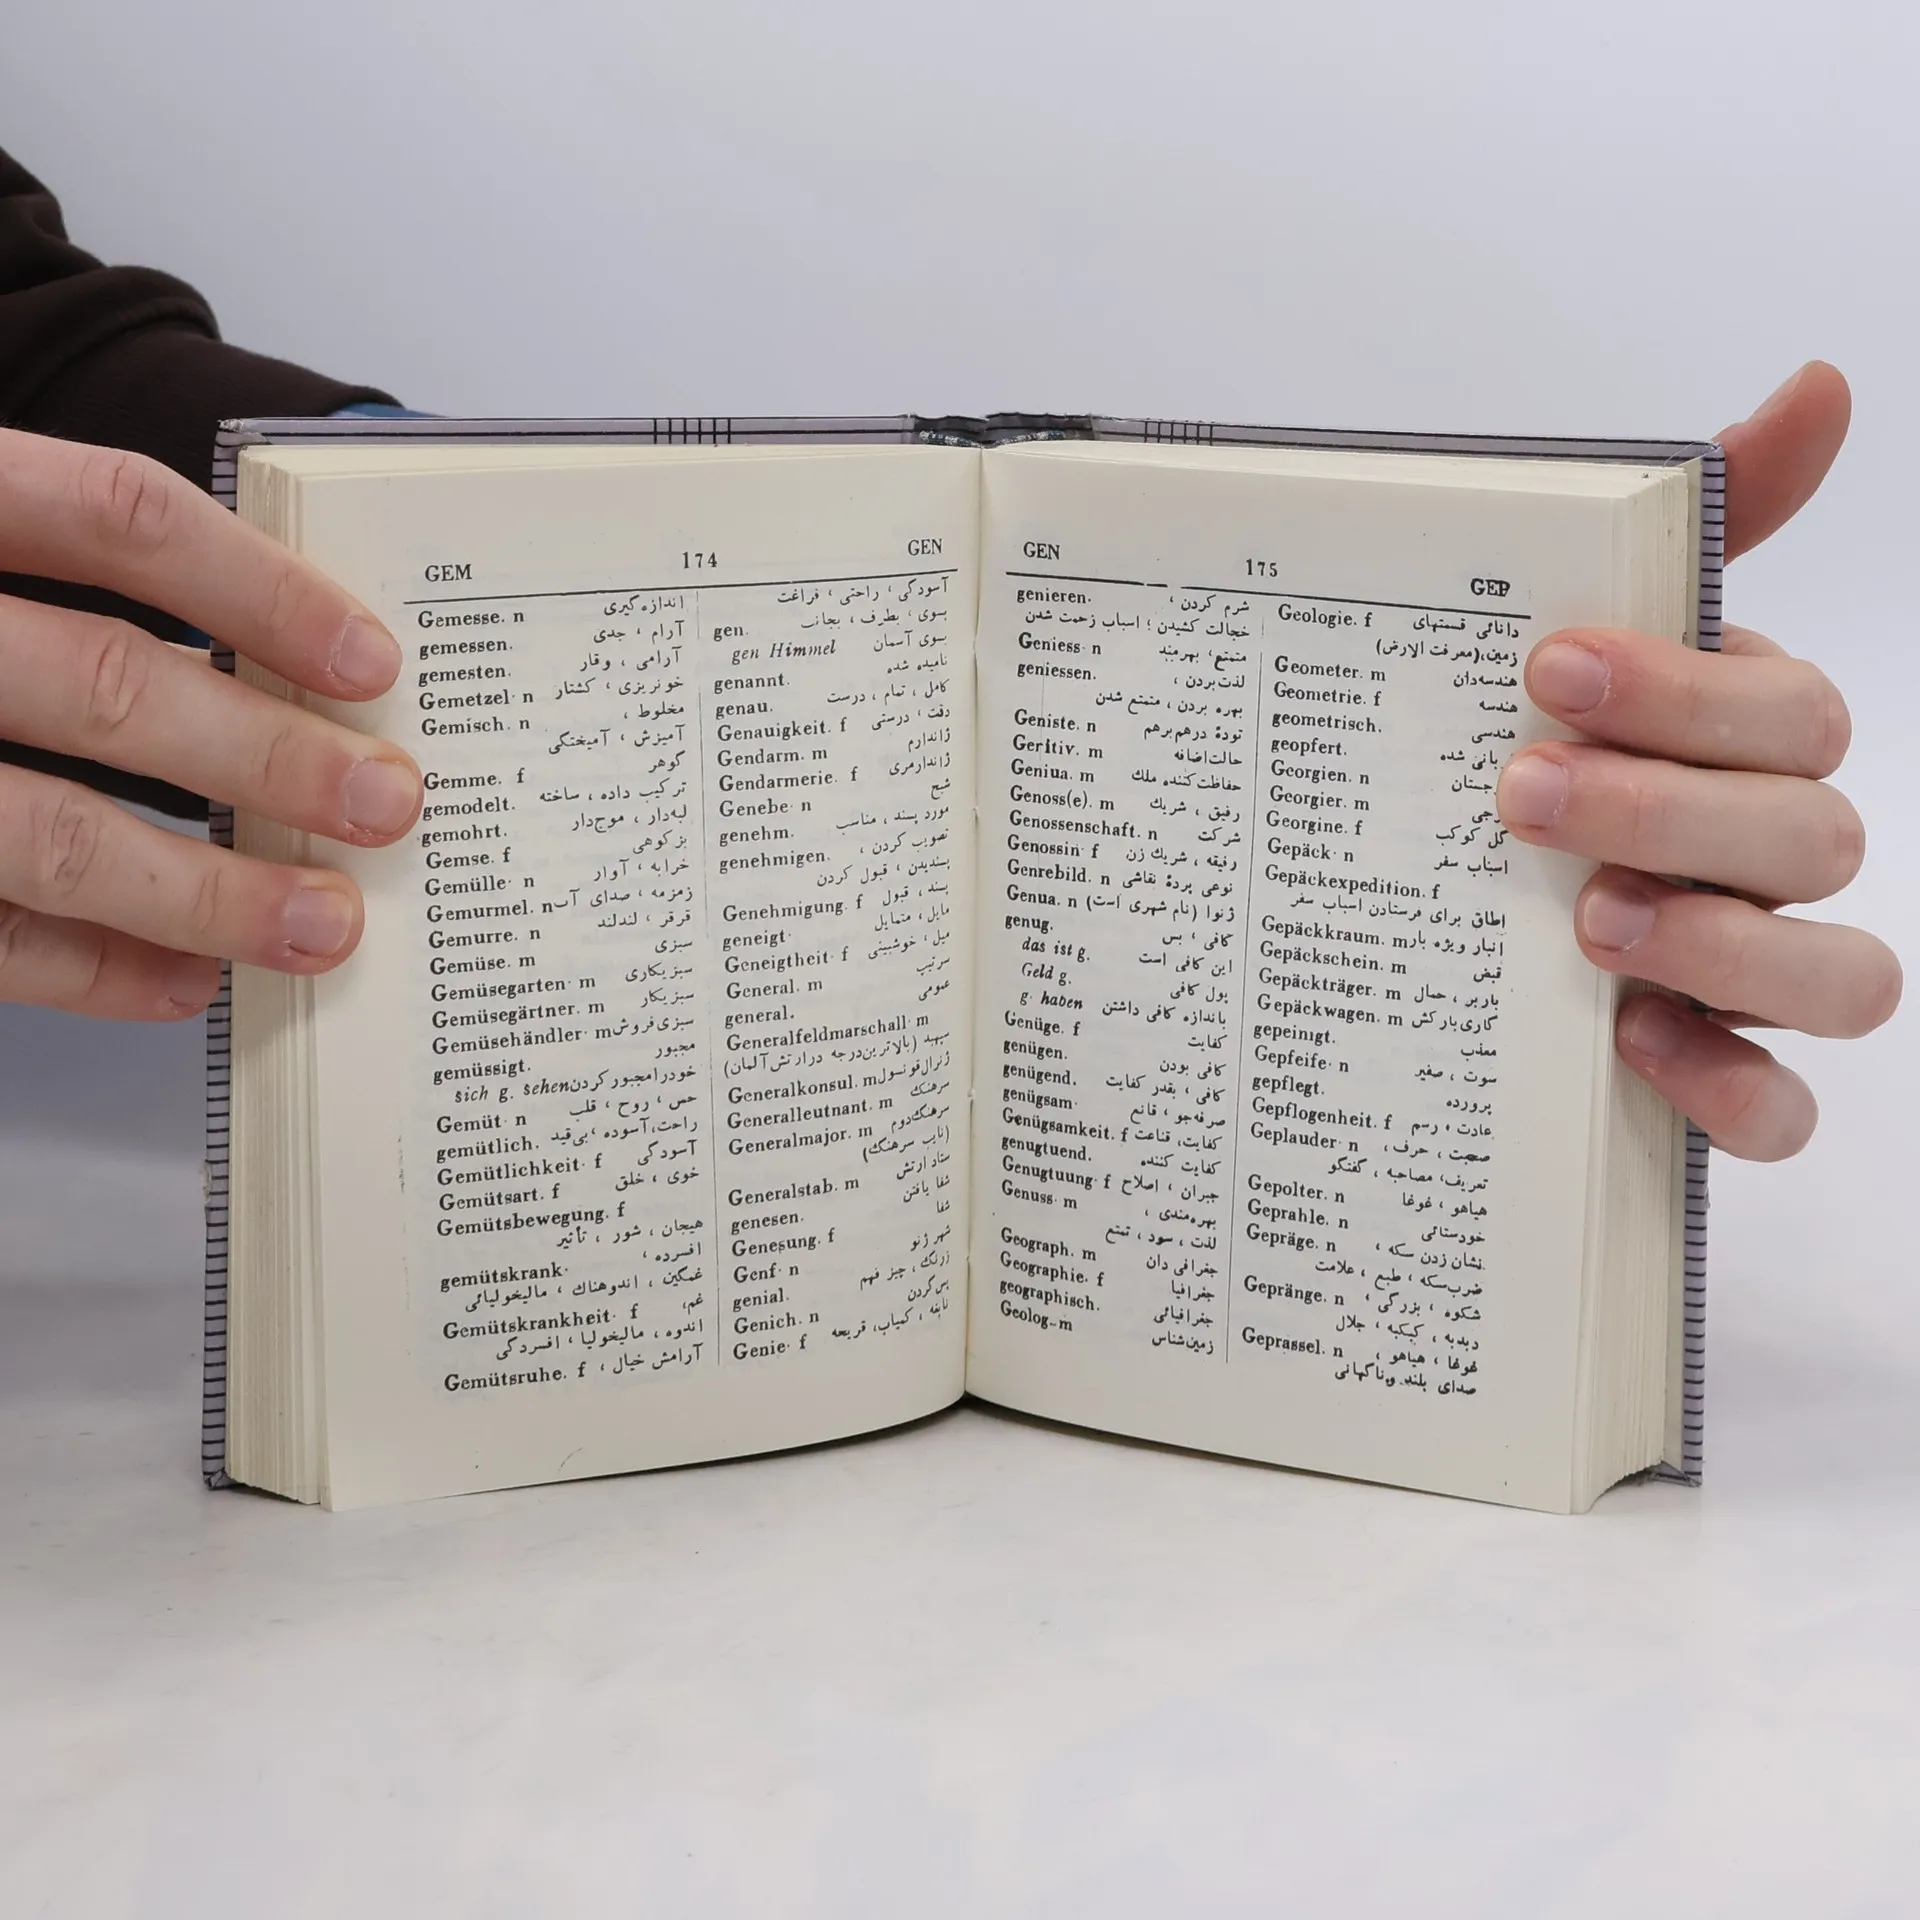 GEM 174 GEN
Gemesse. n اندازه‌گیری
gemessen. آرام ، جدی
gemesten. آرامی ، وقار
Gemetzel· n خونریزی ، کشتار
Gemisch. n مخلوط ،
آمیزش ، آمیختگی
Gemme. f گوهر
gemodelt. ترکیب داده ، ساخته
gemohrt. لبه‌دار ، موج‌دار
Gemse. f بزکوهی
Gemülle· n خرابه ، آوار
Gemurmel. n زمزمه ، صدای آب
Gemurre. n قرقر ، لندلند
Gemüse. m سبزی
Gemüsegarten· m سبزیکاری
Gemüsegärtner. m سبزیکار
Gemüsehändler· m سبزی‌فروش
gemüssigt. مجبور
sich g. sehen خودرامجبور کردن
Gemüt· n حس ، روح ، قلب
gemütlich. راحت،آسوده ،بی‌قید
Gemütlichkeit· f آسودگی
Gemütsart. f خوی ، خلق
Gemütsbewegung. f
هیجان ، شور ، تأثیر
gemütskrank· افسرده ،
غمگین ، اندوهناك ، مالیخولیائی
Gemütskrankheit· f غم،
اندوه ، مالیخولیا ، افسردگی
Gemütsruhe. f آرامش خیال ،
آسودگی ، راحتی ، فراغت
gen. بسوی ، بطرف ، بجانب
gen Himmel بسوی آسمان
genannt. نامیده شده
genau. کامل ، تمام ، درست
Genauigkeit. f دقت ، درستی
Gendarm. m ژاندارم
Gendarmerie. f ژاندارمری
Genebe· n شبح
genehm. مورد پسند ، مناسب
genehmigen. تصویب کردن ،
پسندیدن ، قبول کردن
Genehmigung. f پسند ، قبول
geneigt· مایل ، متمایل
Geneigtheit· f میل ، خوشبینی
General. m سرتیپ
general. عمومی
Generalfeldmarschall· m
سپهبد (بالاترین‌درجه درارتش آلمان)
Generalkonsul. m ژنرال‌قونسول
Generalleutnant. m سرهنگ
Generalmajor. m سرهنگ‌دوم
(نایب سرهنگ)
Generalstab. m ستاد ارتش
genesen. شفا یافتن
Genesung. f شفا
Genf· n شهر ژنو
genial. زرنگ ، چیز فهم
Genich. n پس گردن
Genie· f نابغه ، کمیاب، قریحه
GEN 175 GEP
genieren. شرم کردن ،
خجالت کشیدن ؛ اسباب زحمت شدن
Geniess· n متمتع، بهره‌مند
geniessen. لذت‌بردن ،
بهره بردن ، متمتع شدن
Geniste. n تودهٔ درهم‌برهم
Geritiv. m حالت‌اضافه
Geniua. m حفاظت‌کننده ملك
Genoss(e). m رفیق ، شریك
Genossenschaft. n شرکت
Genossin· f رفیقه ، شریك زن
Genrebild. n نوعی پردهٔ نقاشی
Genua. n ژنوا (نام شهری است)
genug. کافی ، بس
das ist g. این کافی است
Geld g. پول کافی
g· haben باندازه کافی داشتن
Genüge. f کفایت
genügen. کافی بودن
genügend. کافی ، بقدر کفایت
genügsam· صرفه‌جو ، قانع
Genügsamkeit. f کفایت، قناعت
genugtuend. کفایت کننده
Genugtuung· f جبران ، اصلاح
Genuss· m بهره‌مندی ،
لذت ، سود ، تمتع
Geograph. m جغرافی دان
Geographie. f جغرافیا
geographisch. جغرافیائی
Geolog-m زمین‌شناس
Geologie. f دانائی قسمتهای
زمین،(معرفت الارض)
Geometer. m هندسه‌دان
Geometrie. f هندسه
geometrisch. هندسی
geopfert. بانی شده
Georgien. n رجستان
Georgier. m رجی
Georgine. f گل کوکب
Gepäck· n اسباب سفر
Gepäckexpedition. f
اطاق برای فرستادن اسباب سفر
Gepäckkraum. m انبار ویژه بار
Gepäckschein. m قبض
Gepäckträger. m باربر ، حمال
Gepäckwagen. m گاری‌بارکش
gepeinigt. معذب
Gepfeife· n سوت ، صفیر
gepflegt. پرورده
Gepflogenheit. f عادت ، رسم
Geplauder· n صحبت ، حرف ،
تعریف، مصاحبه ، گفتگو
Gepolter. n هیاهو ، غوغا
Geprahle. n خودستائی
Gepräge. n نشان زدن سکه ،
ضرب‌سکه ، طبع ، علامت
Gepränge. n شکوه ، بزرگی ،
دبدبه ، کبکبه ، جلال
Geprassel. n غوغا ، هیاهو ،
صدای بلند وناگهانی